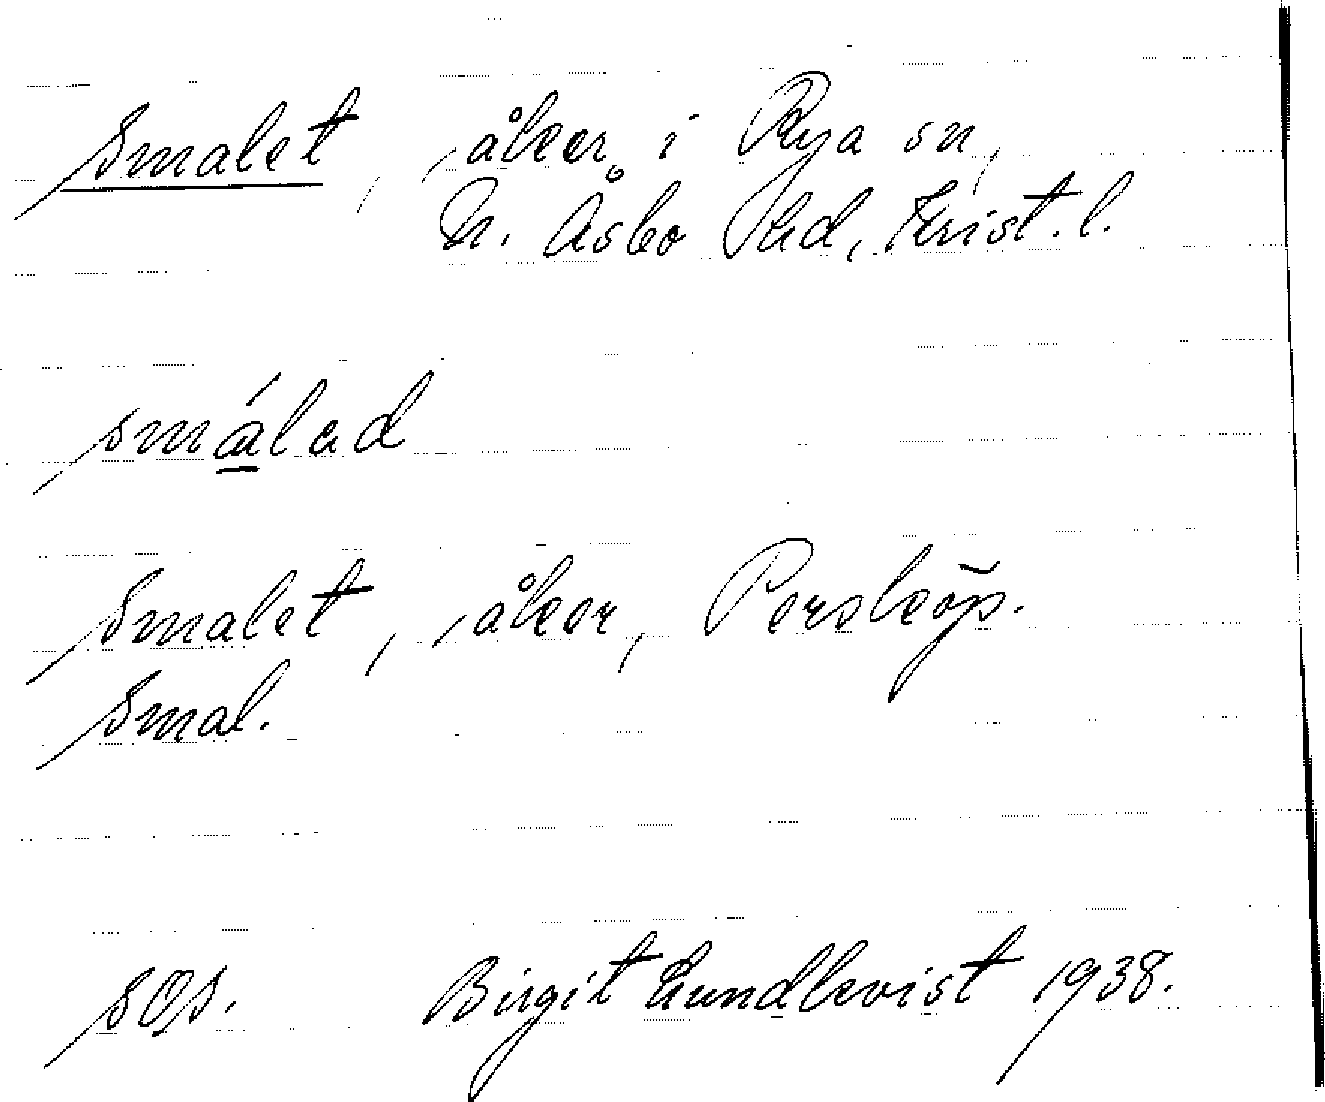 Smalet, åker i Rya sn,
N. Åsbo hd, Krist. l.
smálad
Smalet, åker, Persköp.
Smal.
sOp.
Birgit Lundkvist 1938.